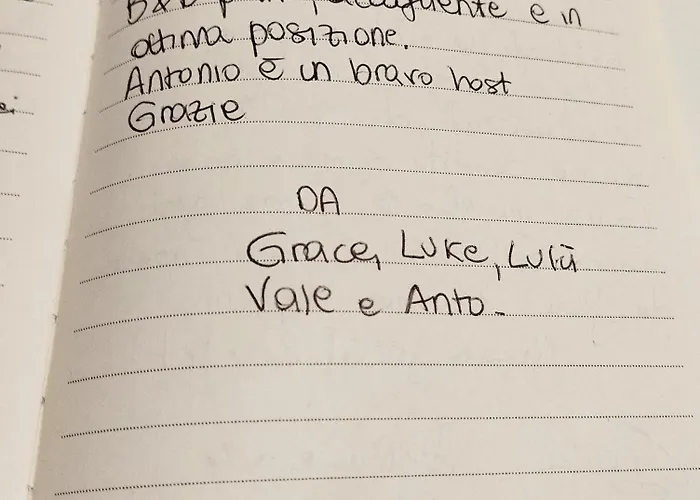 B&B e in
ottima posizione.
Antonio è un bravo host
Grazie
DA
Grace, Luke, Lulù
Vale e Anto.